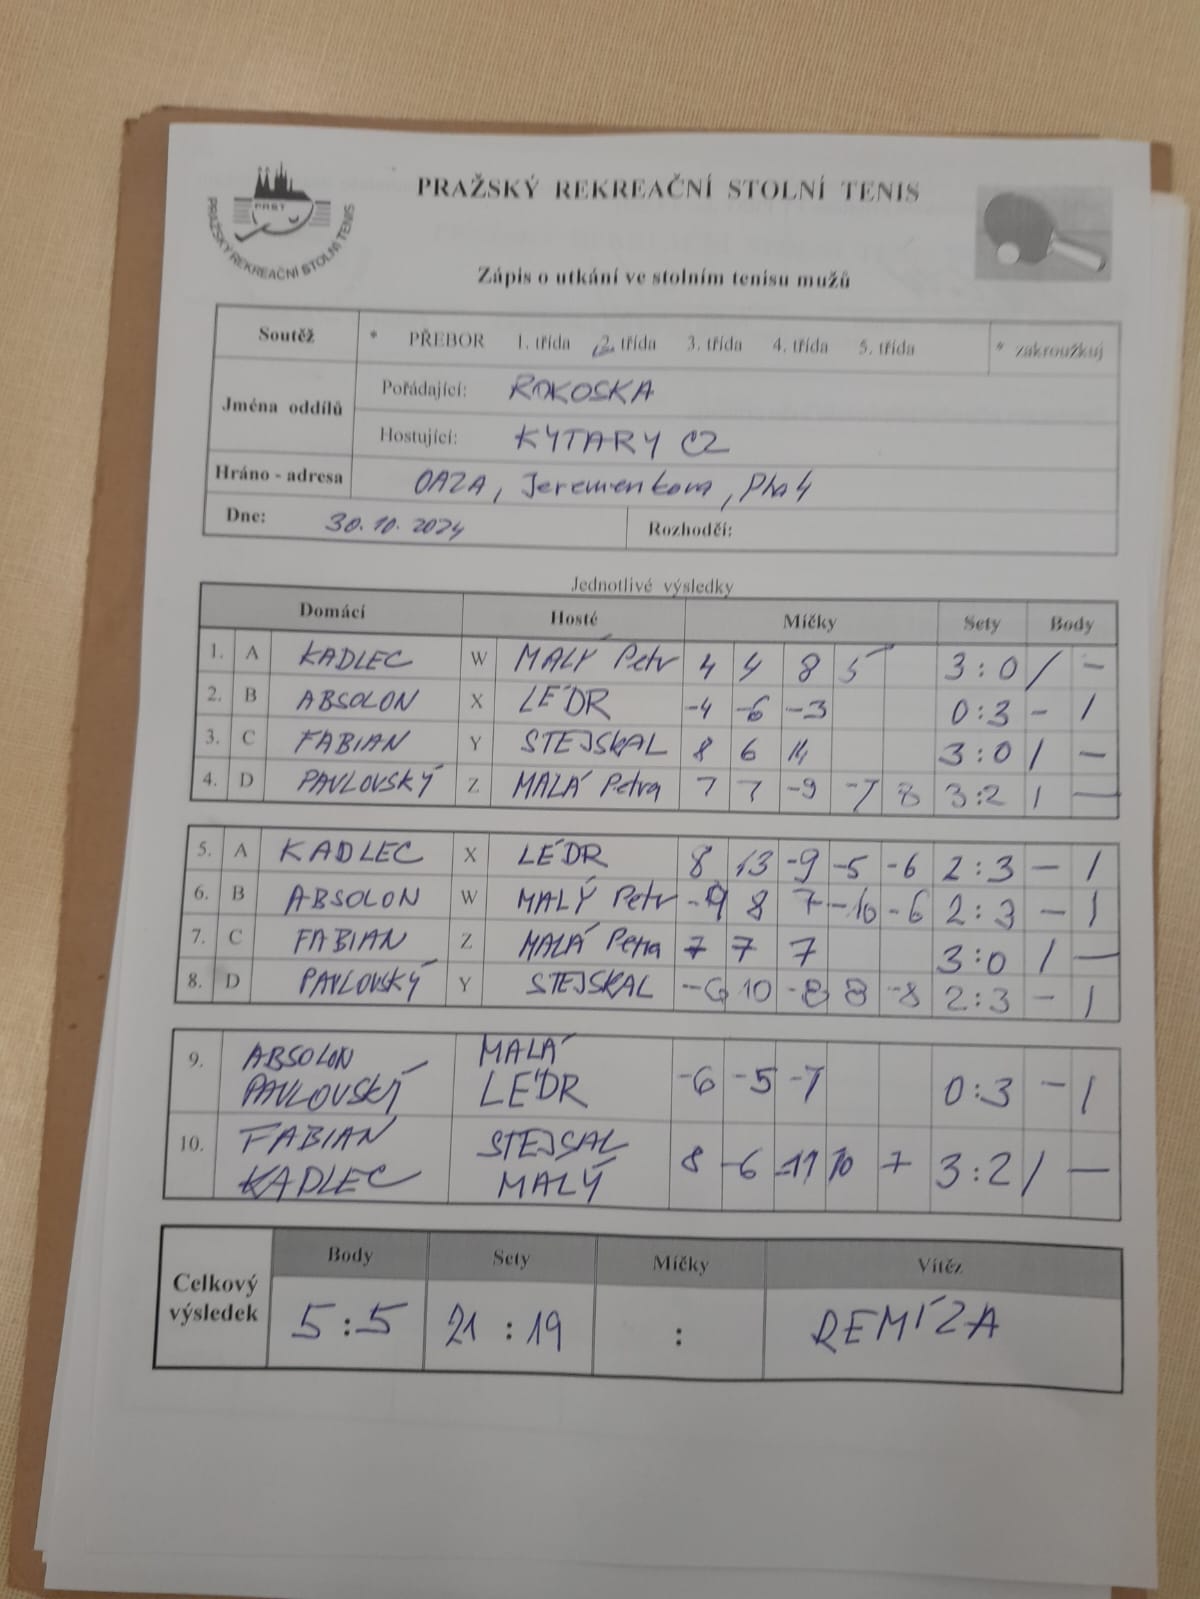 PRAŽSKÝ REKREAČNÍ STOLNÍ TENIS
PRST
PRAŽSKÝ REKREAČNÍ STOLNÍ TENIS
Zápis o utkání ve stolním tenisu mužů
Soutěž * PŘEBOR 1. třída 2. třída 3. třída 4. třída 5. třída * zakroužkuj
Jména oddílů
Pořádající: ROKOSKA
Hostující: KYTARY CZ
Hráno - adresa OAZA, Jeremenkova, Pha 4
Dne: 30.10.2024 Rozhodčí:
Jednotlivé výsledky
Domácí Hosté Míčky Sety Body
1. A KADLEC W MALÝ Petr 4 4 8 5 3:0 / -
2. B ABSOLON X LÉDR -4 -6 -3 0:3 - 1
3. C FABIAN Y STEJSKAL 8 6 14 3:0 1 -
4. D PAVLOVSKÝ Z MALÁ Petra 7 7 -9 -7 8 3:2 1 -
5. A KADLEC X LÉDR 8 13 -9 -5 -6 2:3 - 1
6. B ABSOLON W MALÝ Petr -9 8 7 -10 -6 2:3 - 1
7. C FABIAN Z MALÁ Petra 7 7 7 3:0 1 -
8. D PAVLOVSKÝ Y STEJSKAL -6 10 -8 8 -8 2:3 - 1
9. ABSOLON MALÁ
PAVLOVSKÝ LÉDR -6 -5 -7 0:3 - 1
10. FABIAN STEJSAL
KADLEC MALÝ 8 -6 -11 10 7 3:2 / -
Celkový výsledek
Body Sety Míčky Vítěz
5:5 21:19 : REMÍZA